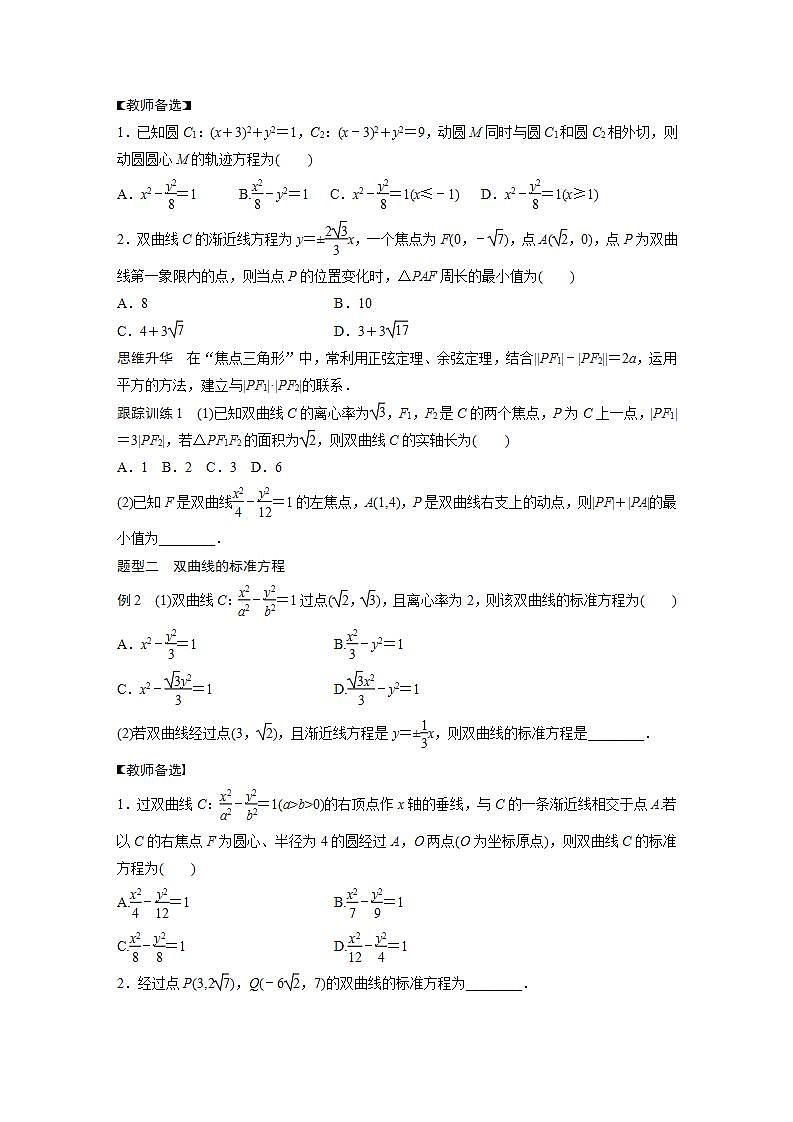 【教师备选】
1.已知圆C1:(x+3)²+y²=1,C2:(x-3)²+y²=9,动圆M同时与圆C1和圆C2相外切,则
动圆圆心M的轨迹方程为(  )
A.x²-y²/8=1  B.x²/8-y²=1  C.x²-y²/8=1(x≤-1)  D.x²-y²/8=1(x≥1)
2.双曲线C的渐近线方程为y=±2√3/3x,一个焦点为F(0,-√7),点A(√2,0),点P为双曲
线第一象限内的点,则当点P的位置变化时,△PAF周长的最小值为(  )
A.8  B.10
C.4+3√7  D.3+3√17
思维升华 在“焦点三角形”中,常利用正弦定理、余弦定理,结合||PF1|-|PF2||=2a,运用
平方的方法,建立与|PF1|·|PF2|的联系.
跟踪训练1 (1)已知双曲线C的离心率为√3,F1,F2是C的两个焦点,P为C上一点,|PF1|
=3|PF2|,若△PF1F2的面积为√2,则双曲线C的实轴长为(  )
A.1 B.2 C.3 D.6
(2)已知F是双曲线x²/4-y²/12=1的左焦点,A(1,4),P是双曲线右支上的动点,则|PF|+|PA|的最
小值为________.
题型二 双曲线的标准方程
例2 (1)双曲线C:x²/a²-y²/b²=1过点(√2,√3),且离心率为2,则该双曲线的标准方程为(  )
A.x²-y²/3=1  B.x²/3-y²=1
C.x²-√3y²/3=1  D.√3x²/3-y²=1
(2)若双曲线经过点(3,√2),且渐近线方程是y=±1/3x,则双曲线的标准方程是________.
【教师备选】
1.过双曲线C:x²/a²-y²/b²=1(a>b>0)的右顶点作x轴的垂线,与C的一条渐近线相交于点A.若
以C的右焦点F为圆心、半径为4的圆经过A,O两点(O为坐标原点),则双曲线C的标准
方程为(  )
A.x²/4-y²/12=1  B.x²/7-y²/9=1
C.x²/8-y²/8=1  D.x²/12-y²/4=1
2.经过点P(3,2√7),Q(-6√2,7)的双曲线的标准方程为________.